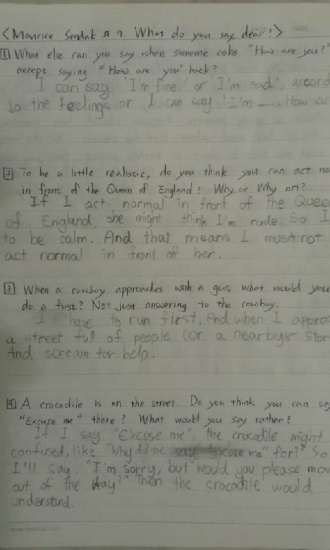 <Maurice Sendak 의 책. What do you say dear?>
1 What else can you say when someone asks "How are you?"
except saying "How are you" back?
I can say 'I'm fine' or I'm sad', accord
to the feelings or I can say 'I'm __. How ar
2 To be a little realistic, do you think you can act no
in front of the Queen of England? Why or Why not?
If I act normal in front of the Quee
of England, she might think I'm rude. So I
to be calm. And that means I must not
act normal in front of her.
3 When a cowboy approaches with a gun, what would you
do a first? Not just answering to the cowboy.
I'll have to run first. And when I approa
a street full of people (or a nearby stor
And scream for help.
4 A crocodile is on the street. Do you think you can say
"Excuse me" there? What would you say rather?
If I say "Excuse me", the crocodile might
confused, like "Why did he say 'excuse me" for?" So
I'll say, "I'm sorry, but would you please mov
out of the way?" Then the crocodile would
understand.